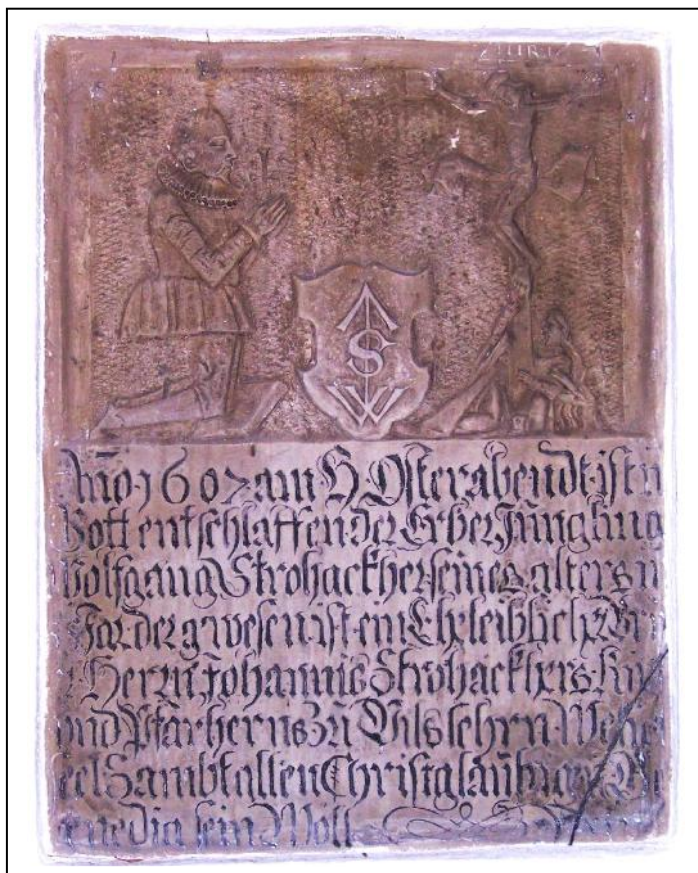 INRI
S
W
Año 1607 am H Osterabendt ist
Gott entschlaffen der Erber Jüngling
Wolfgang Strohackher seines alters
Jar der gwesen ist ein Ehleiblicher
Herrn Johannis Strohackhers
und Pfarherns Zu Vilslehrn
Seel Sambt allen Christglaubigen
genedig sein Woll